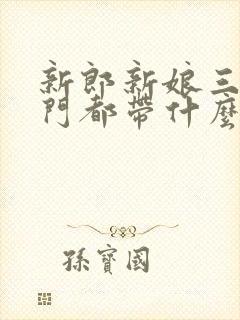 新郎新娘三
門都帶什麼
孫寶國